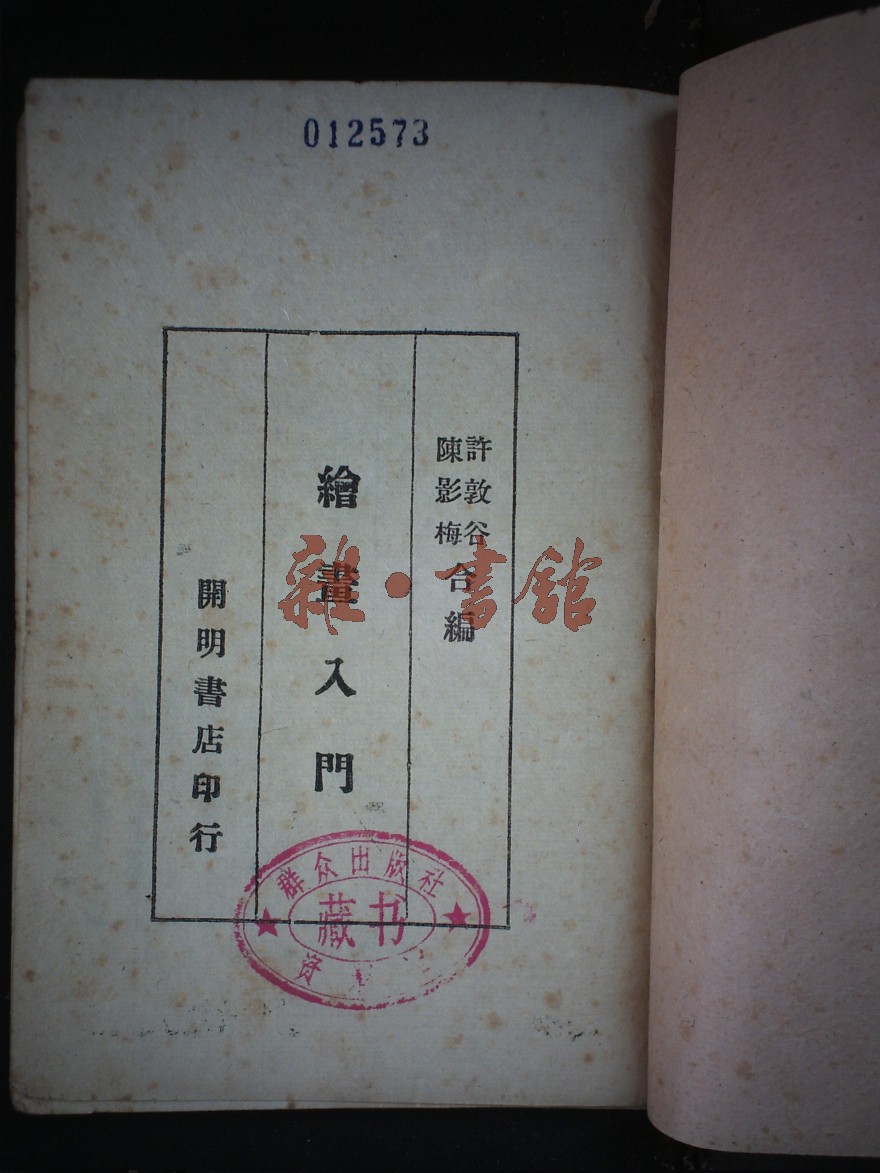 012573
許敦谷
陳影梅
合編
繪畫入門
開明書店印行
雜·書館
群众出版社
藏书
资